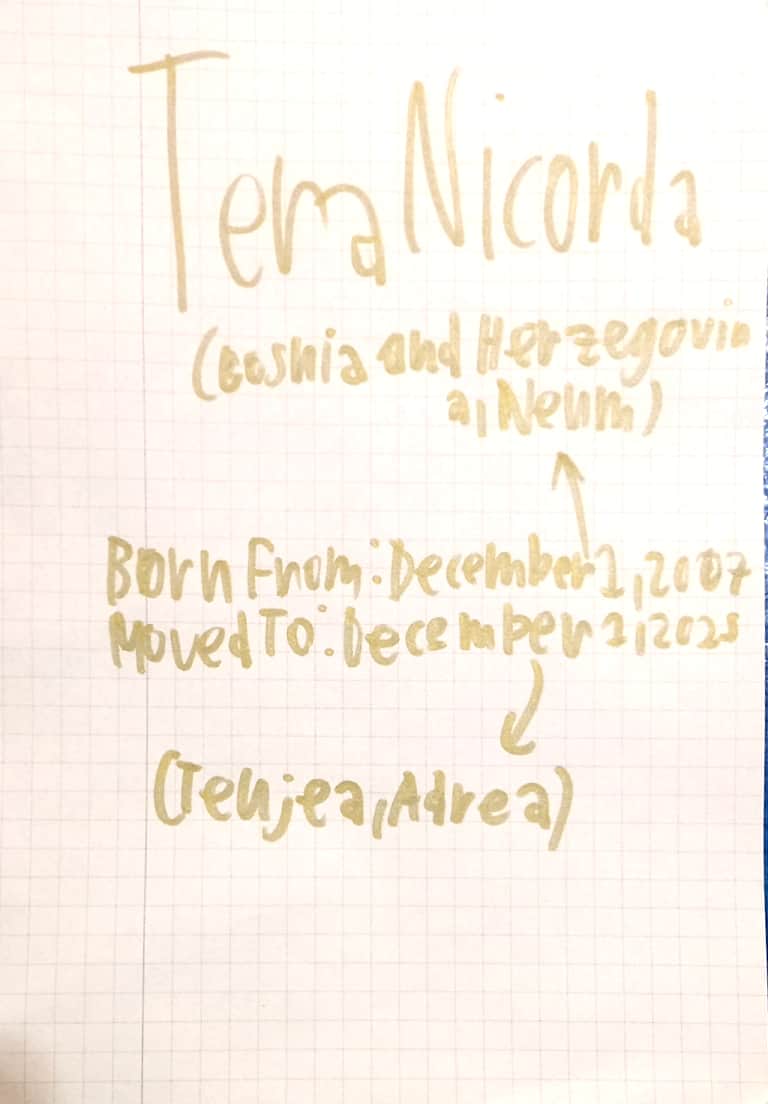 Tera Nicorda
(Bosnia and Herzegovin
a, Neum)
Born From: December 1, 2007
Moved To: December 1, 2025
(Tenjea, Adrea)